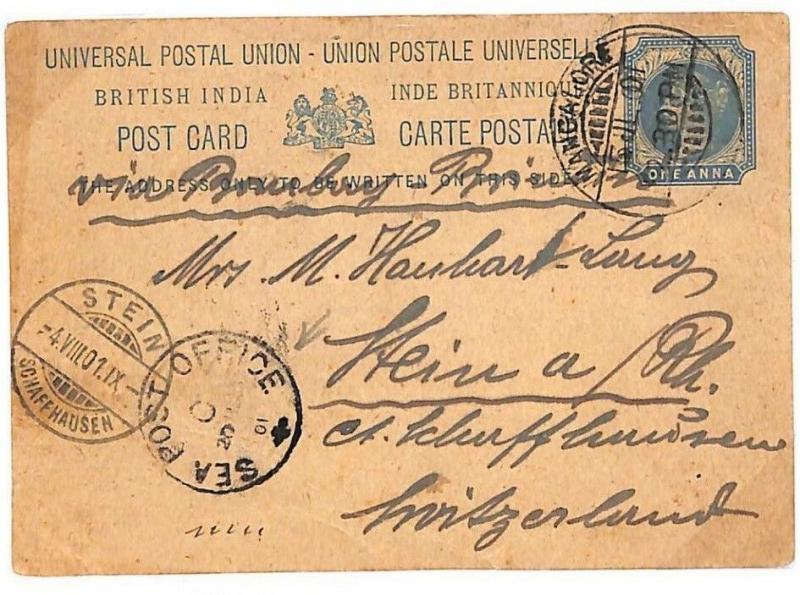 UNIVERSAL POSTAL UNION - UNION POSTALE UNIVERSELLE
BRITISH INDIA INDE BRITANNIQUE
POST CARD CARTE POSTALE
THE ADDRESS ONLY TO BE WRITTEN ON THIS SIDE
ONE ANNA
MANGALORE
30 PM
via Bombay Brindisi
Mrs. M. Hanhart-Lang
Stein a/Rh.
ct. Schaffhausen
Switzerland
STEIN
-4.VIII.01.IX-
SCHAFFHAUSEN
SEA POST OFFICE
C
20
01